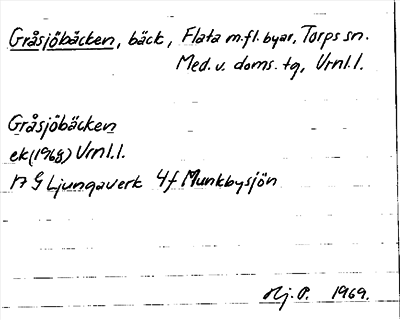 Gråsjöbäcken, bäck, Flata m.fl. byar, Torps sn.
Med. v. doms. tg, Vrnl.l.
Gråsjöbäcken
ek (1968) Vrnl.l.
17 G Ljungaverk 4f Munkbysjön
Hj. P. 1969.